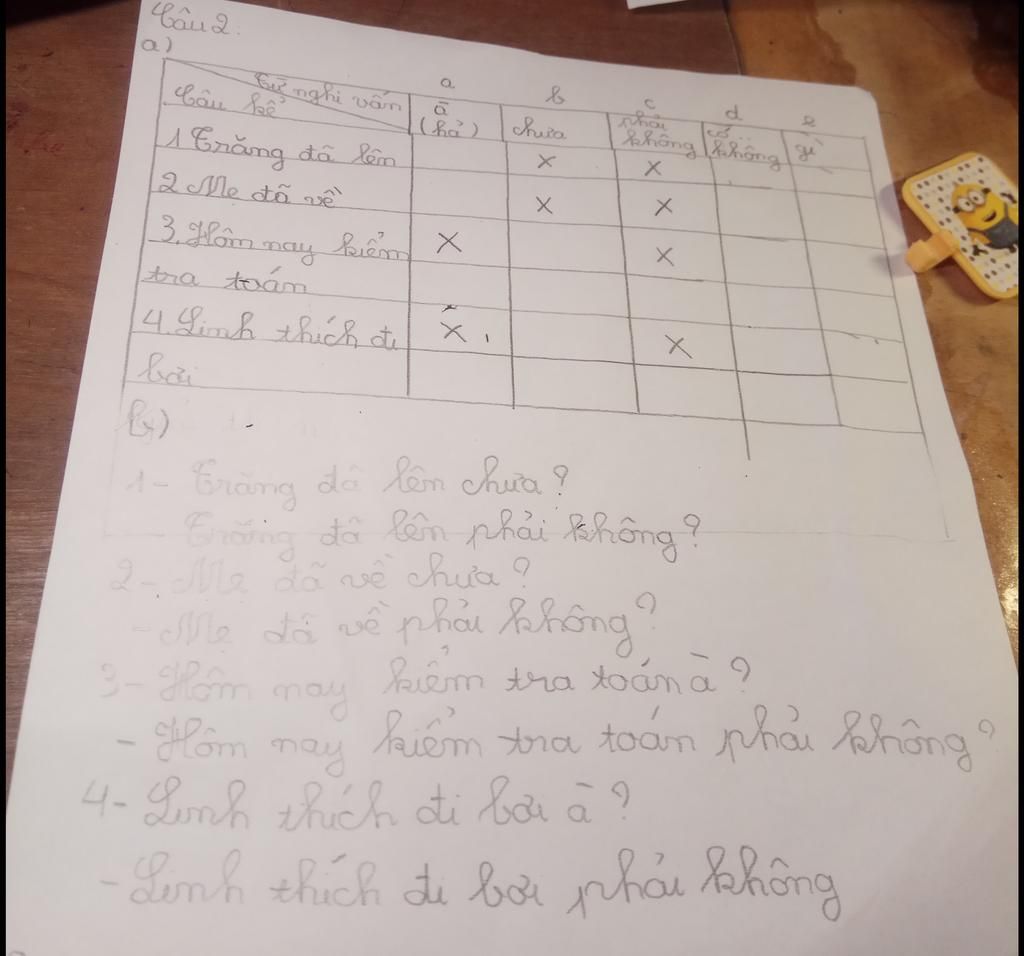 Câu 2.
a)
Từ nghi vấn
Câu kể
a b c d e
à (hả) chưa phải không có không gì
1 Trăng đã lên x x
2 Mẹ đã về x x
3. Hôm nay kiểm x x
tra toán
4. Linh thích đi x x
bơi
b)
1- Trăng đã lên chưa?
- Trăng đã lên phải không?
2- Mẹ đã về chưa?
- Mẹ đã về phải không?
3- Hôm nay kiểm tra toán à?
- Hôm nay kiểm tra toán phải không?
4- Linh thích đi bơi à?
- Linh thích đi bơi phải không